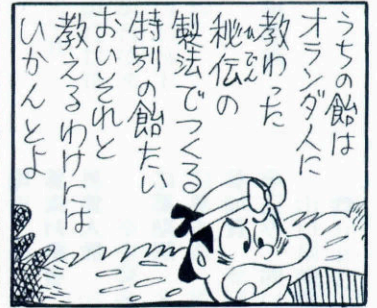 うちの飴は
オランダ人に
教わった
秘伝の
ひでん
製法でつくる
特別の飴たい
おいそれと
教えるわけには
いかんとよ